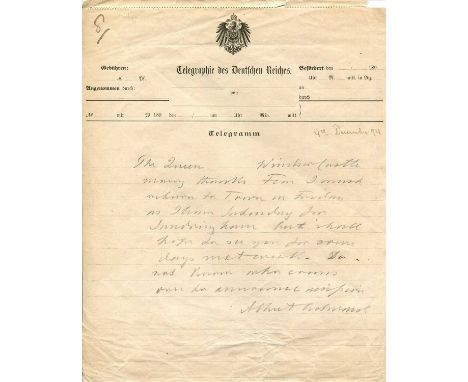 8
Gebühren:
Telegraphie des Deutschen Reiches.
Befördert den / 189
Angenommen durch:
Uhr M. mitt. in Ltg.
an
durch
№ mit W 189 den / um Uhr Min. mitt.
Telegramm
4th December 94
The Queen Windsor Castle
many thanks I
return to Town on Friday
as I leave Saturday for
Sandringham but should
hope to see you for some
days next week Do
not know who comes
over to announce
Albert Edward